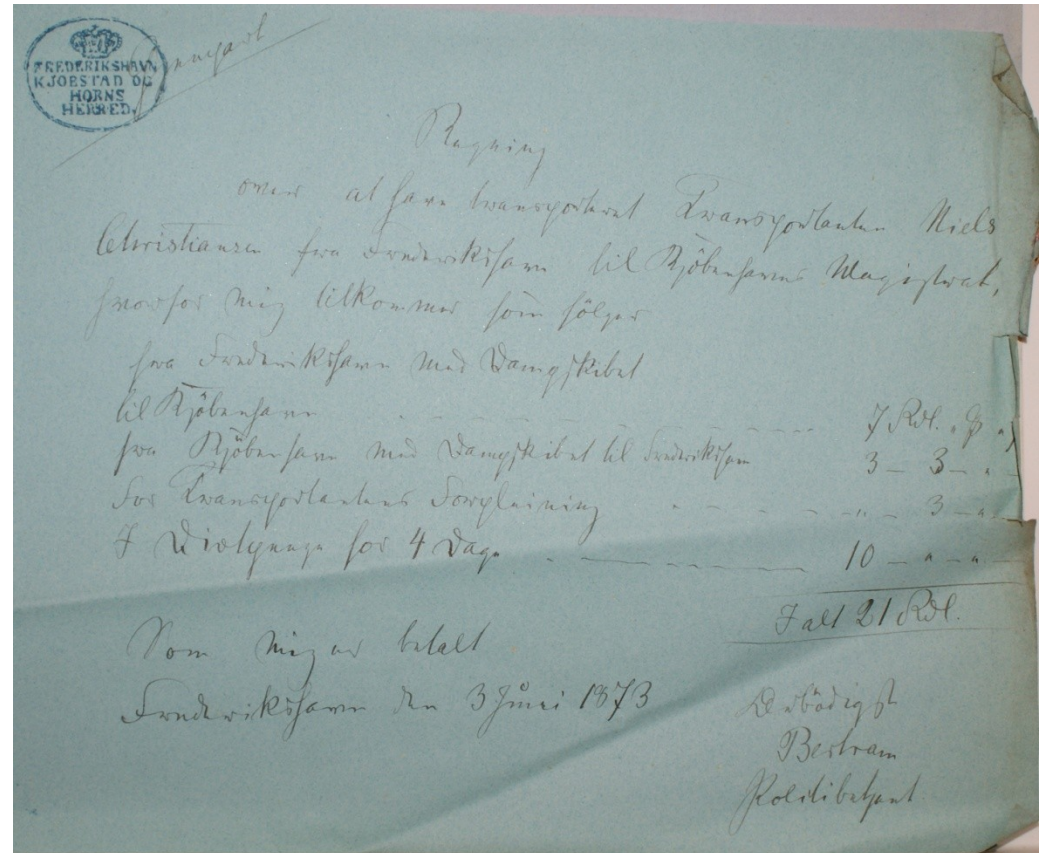 FREDERIKSHAVN
KJØBSTAD OG
HORNS
HERRED.
Regning
over at have transporteret Transportanten Niels
Christiansen fra Frederikshavn til Kjöbenhavns Magistrat,
hvorfor mig tilkommer som fölger
fra Frederikshavn med Dampskibet
til Kjöbenhavn - - - - 7 Rdl. " "
fra Kjöbenhavn med Dampskibet til Frederikshavn 3 - 3 - "
For Transportantens Forpleining - - - - " - 3 - "
I Diætpenge for 4 Dage - - - 10 - " - "
I alt 21 Rdl.
Som mig er betalt
Frederikshavn den 3 Juni 1873
Ærbödigst
Bertram
Politibetjent